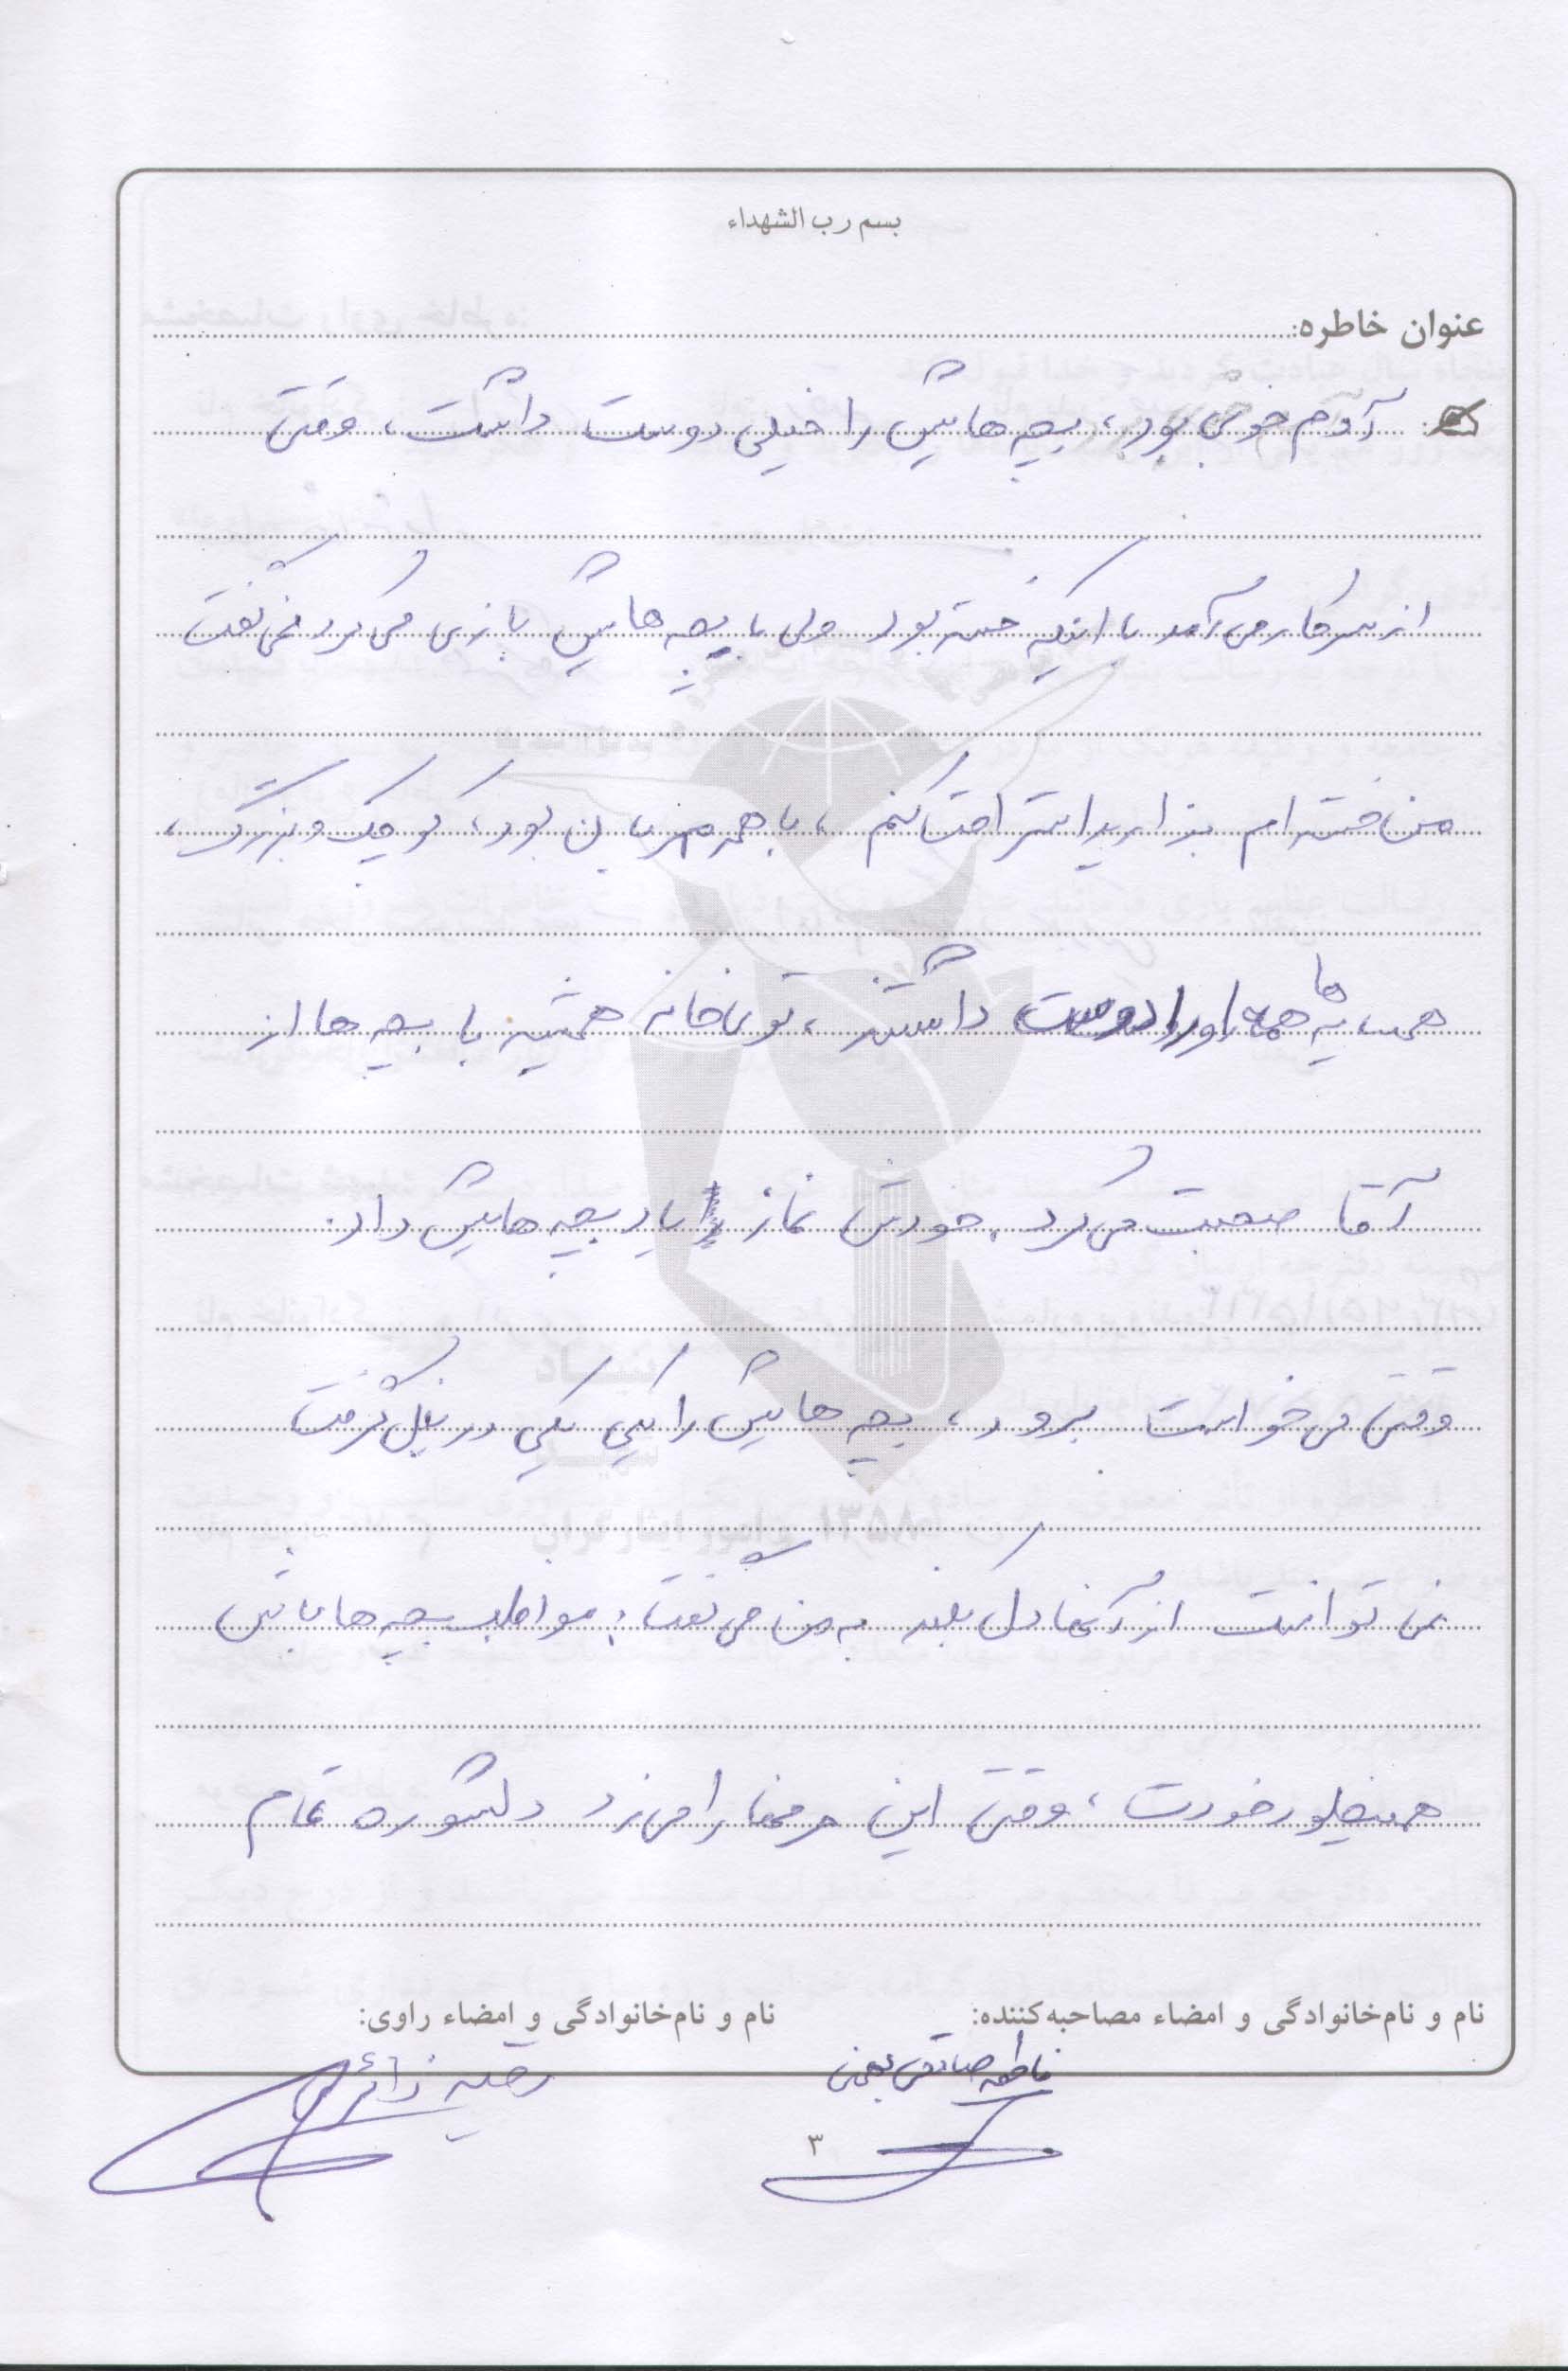 بسم رب الشهداء
عنوان خاطره:
آدم خوبی بود، بچه هایش را خیلی دوست داشت، وقتی
از سر کار می آمد با اینکه خسته بود ولی با بچه هایش بازی می کرد نمی گفت
من خسته ام بذارید استراحت کنم، با همه مهربان بود، کوچک و بزرگ،
همسایه ها همه او را دوست داشتند، توی خانه همیشه با بچه ها از
آقا صحبت می کرد. خودش نماز یاد بچه هایش داد.
وقتی می خواست برود، بچه هایش را یکی یکی در بغل گرفت
نمی توانست از آنها دل بکند به من می گفت: مواظب بچه ها باش
همینطور خودت، وقتی این حرفها را می زد دلشوره تمام
نام و نام‌خانوادگی و امضاء مصاحبه‌کننده:
نام و نام‌خانوادگی و امضاء راوی:
فاطمه صادقی
رقیه زائری
۳